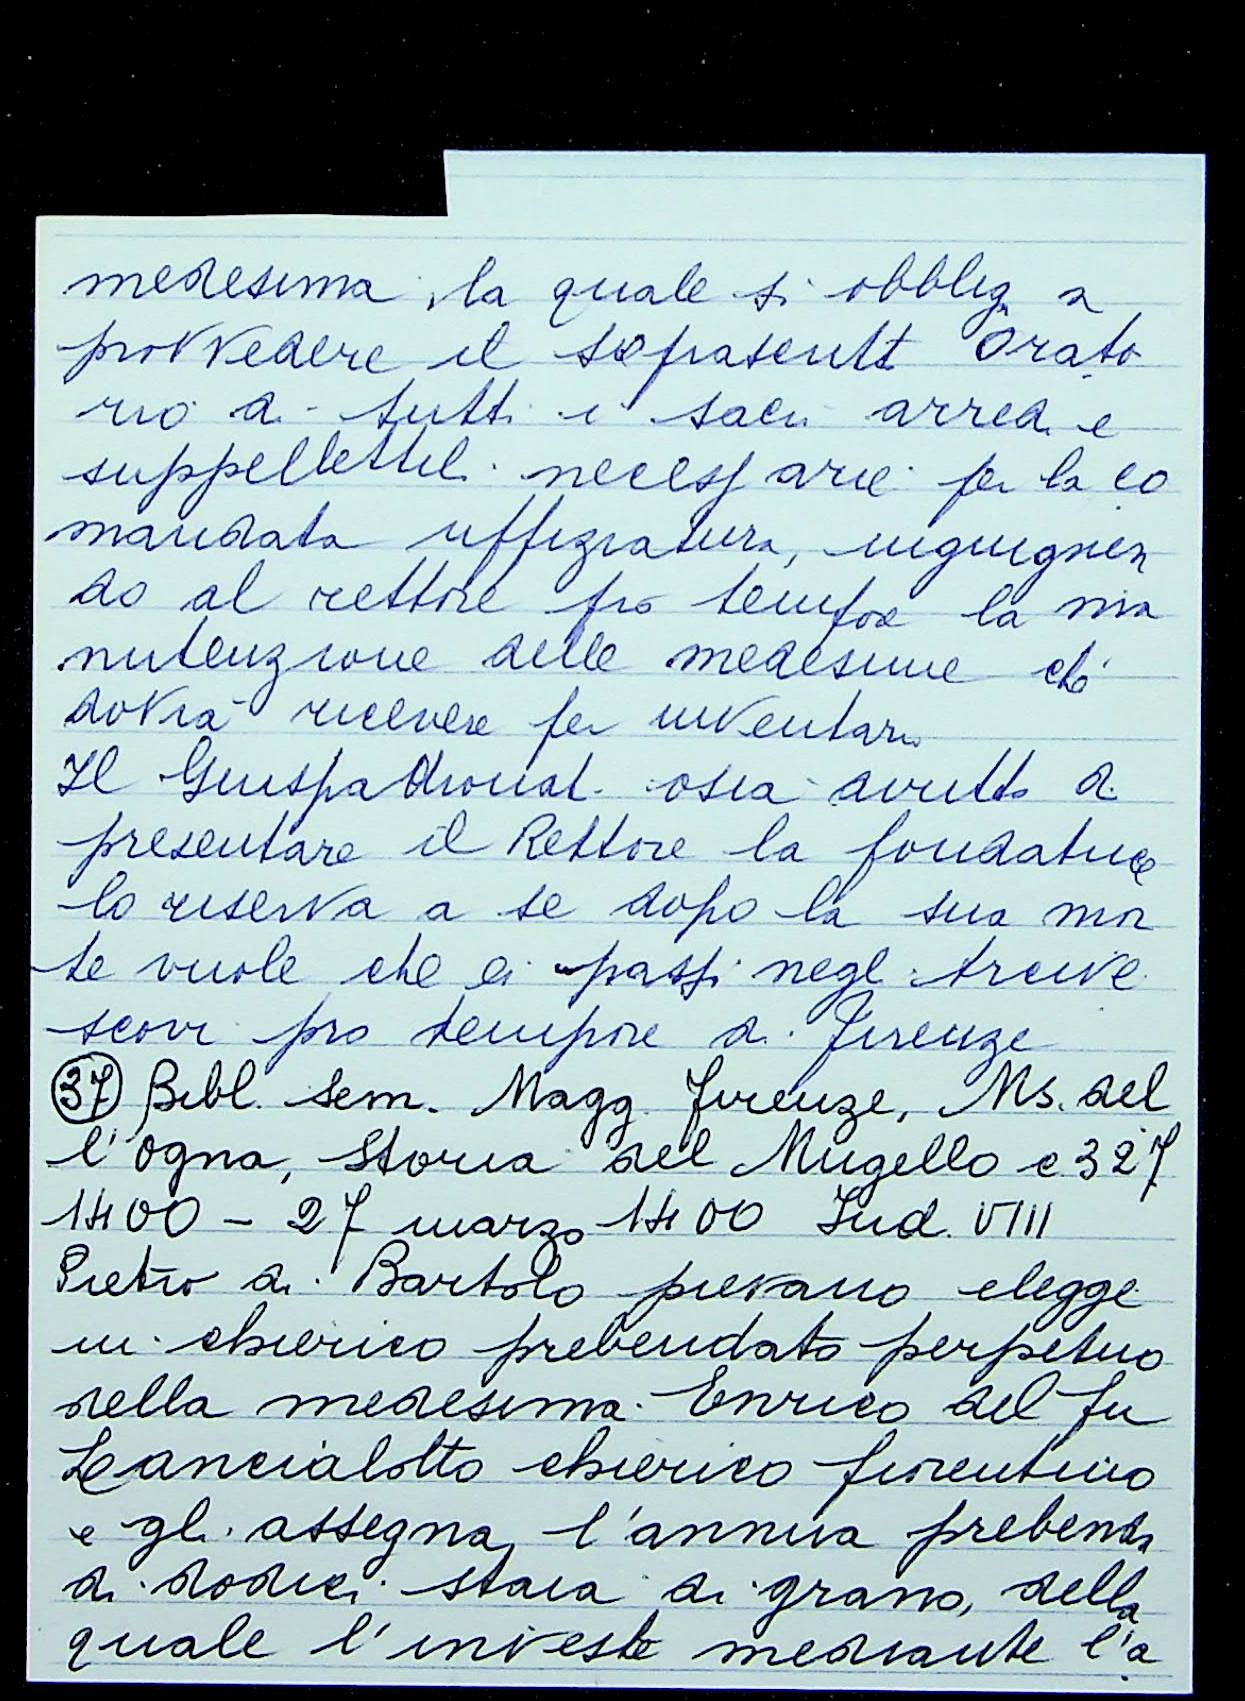 medesima, la quale si obbliga a
provvedere il soprascritt Orato
rio di tutti i sacri arredi e
suppellettili necessarie per la co
mandata uffiziatura, ingiugnen
do al rettore pro tempore la ma
nutenzione delle medesime che
dovrà ricevere per inventario
Il Giuspadronat. osia diritto di
presentare il Rettore la fondatrice
lo riserva a se dopo la sua mor
te vuole che ei passi negli Arcive
scovi pro tempore di Firenze
(37) Bibl. Sem. Magg. Firenze, Ms. del
l'ogna, Storia del Mugello c 327
1400 - 27 marzo 1400 Ind. VIII
Pietro di Bartolo pievano elegge
in chierico prebendato perpetuo
della medesima Enrico del fu
Lancialotto chierico fiorentino
e gli assegna l'annua prebenda
di dodici staia di grano, della
quale l'investe mediante l'a